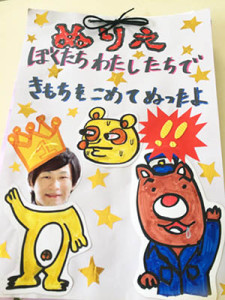 ぬりえ
ぼくたちわたしたちで
きもちをこめてぬったよ
!!